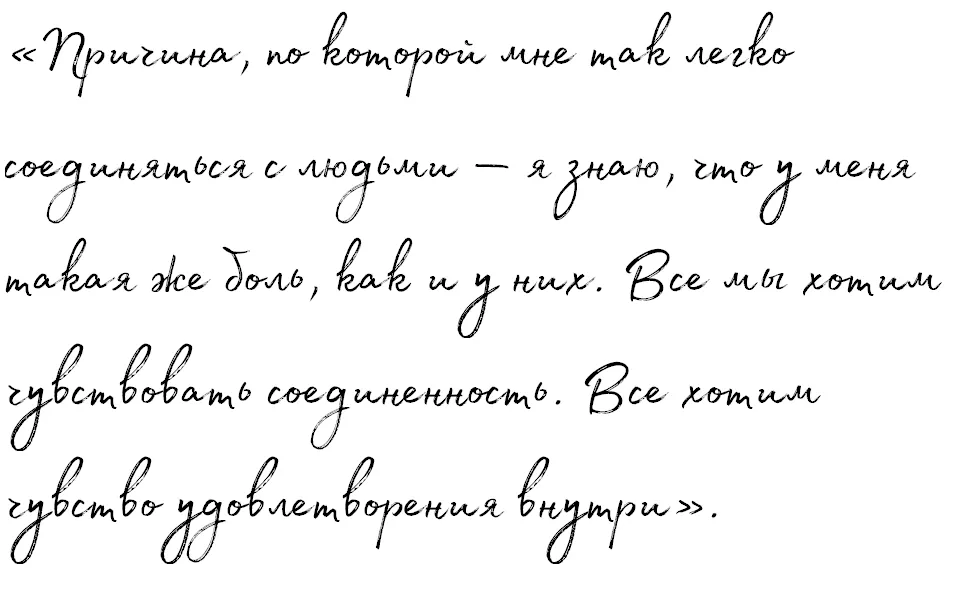 «Причина, по которой мне так легко
соединяться с людьми — я знаю, что у меня
такая же боль, как и у них. Все мы хотим
чувствовать соединенность. Все хотим
чувство удовлетворения внутри».